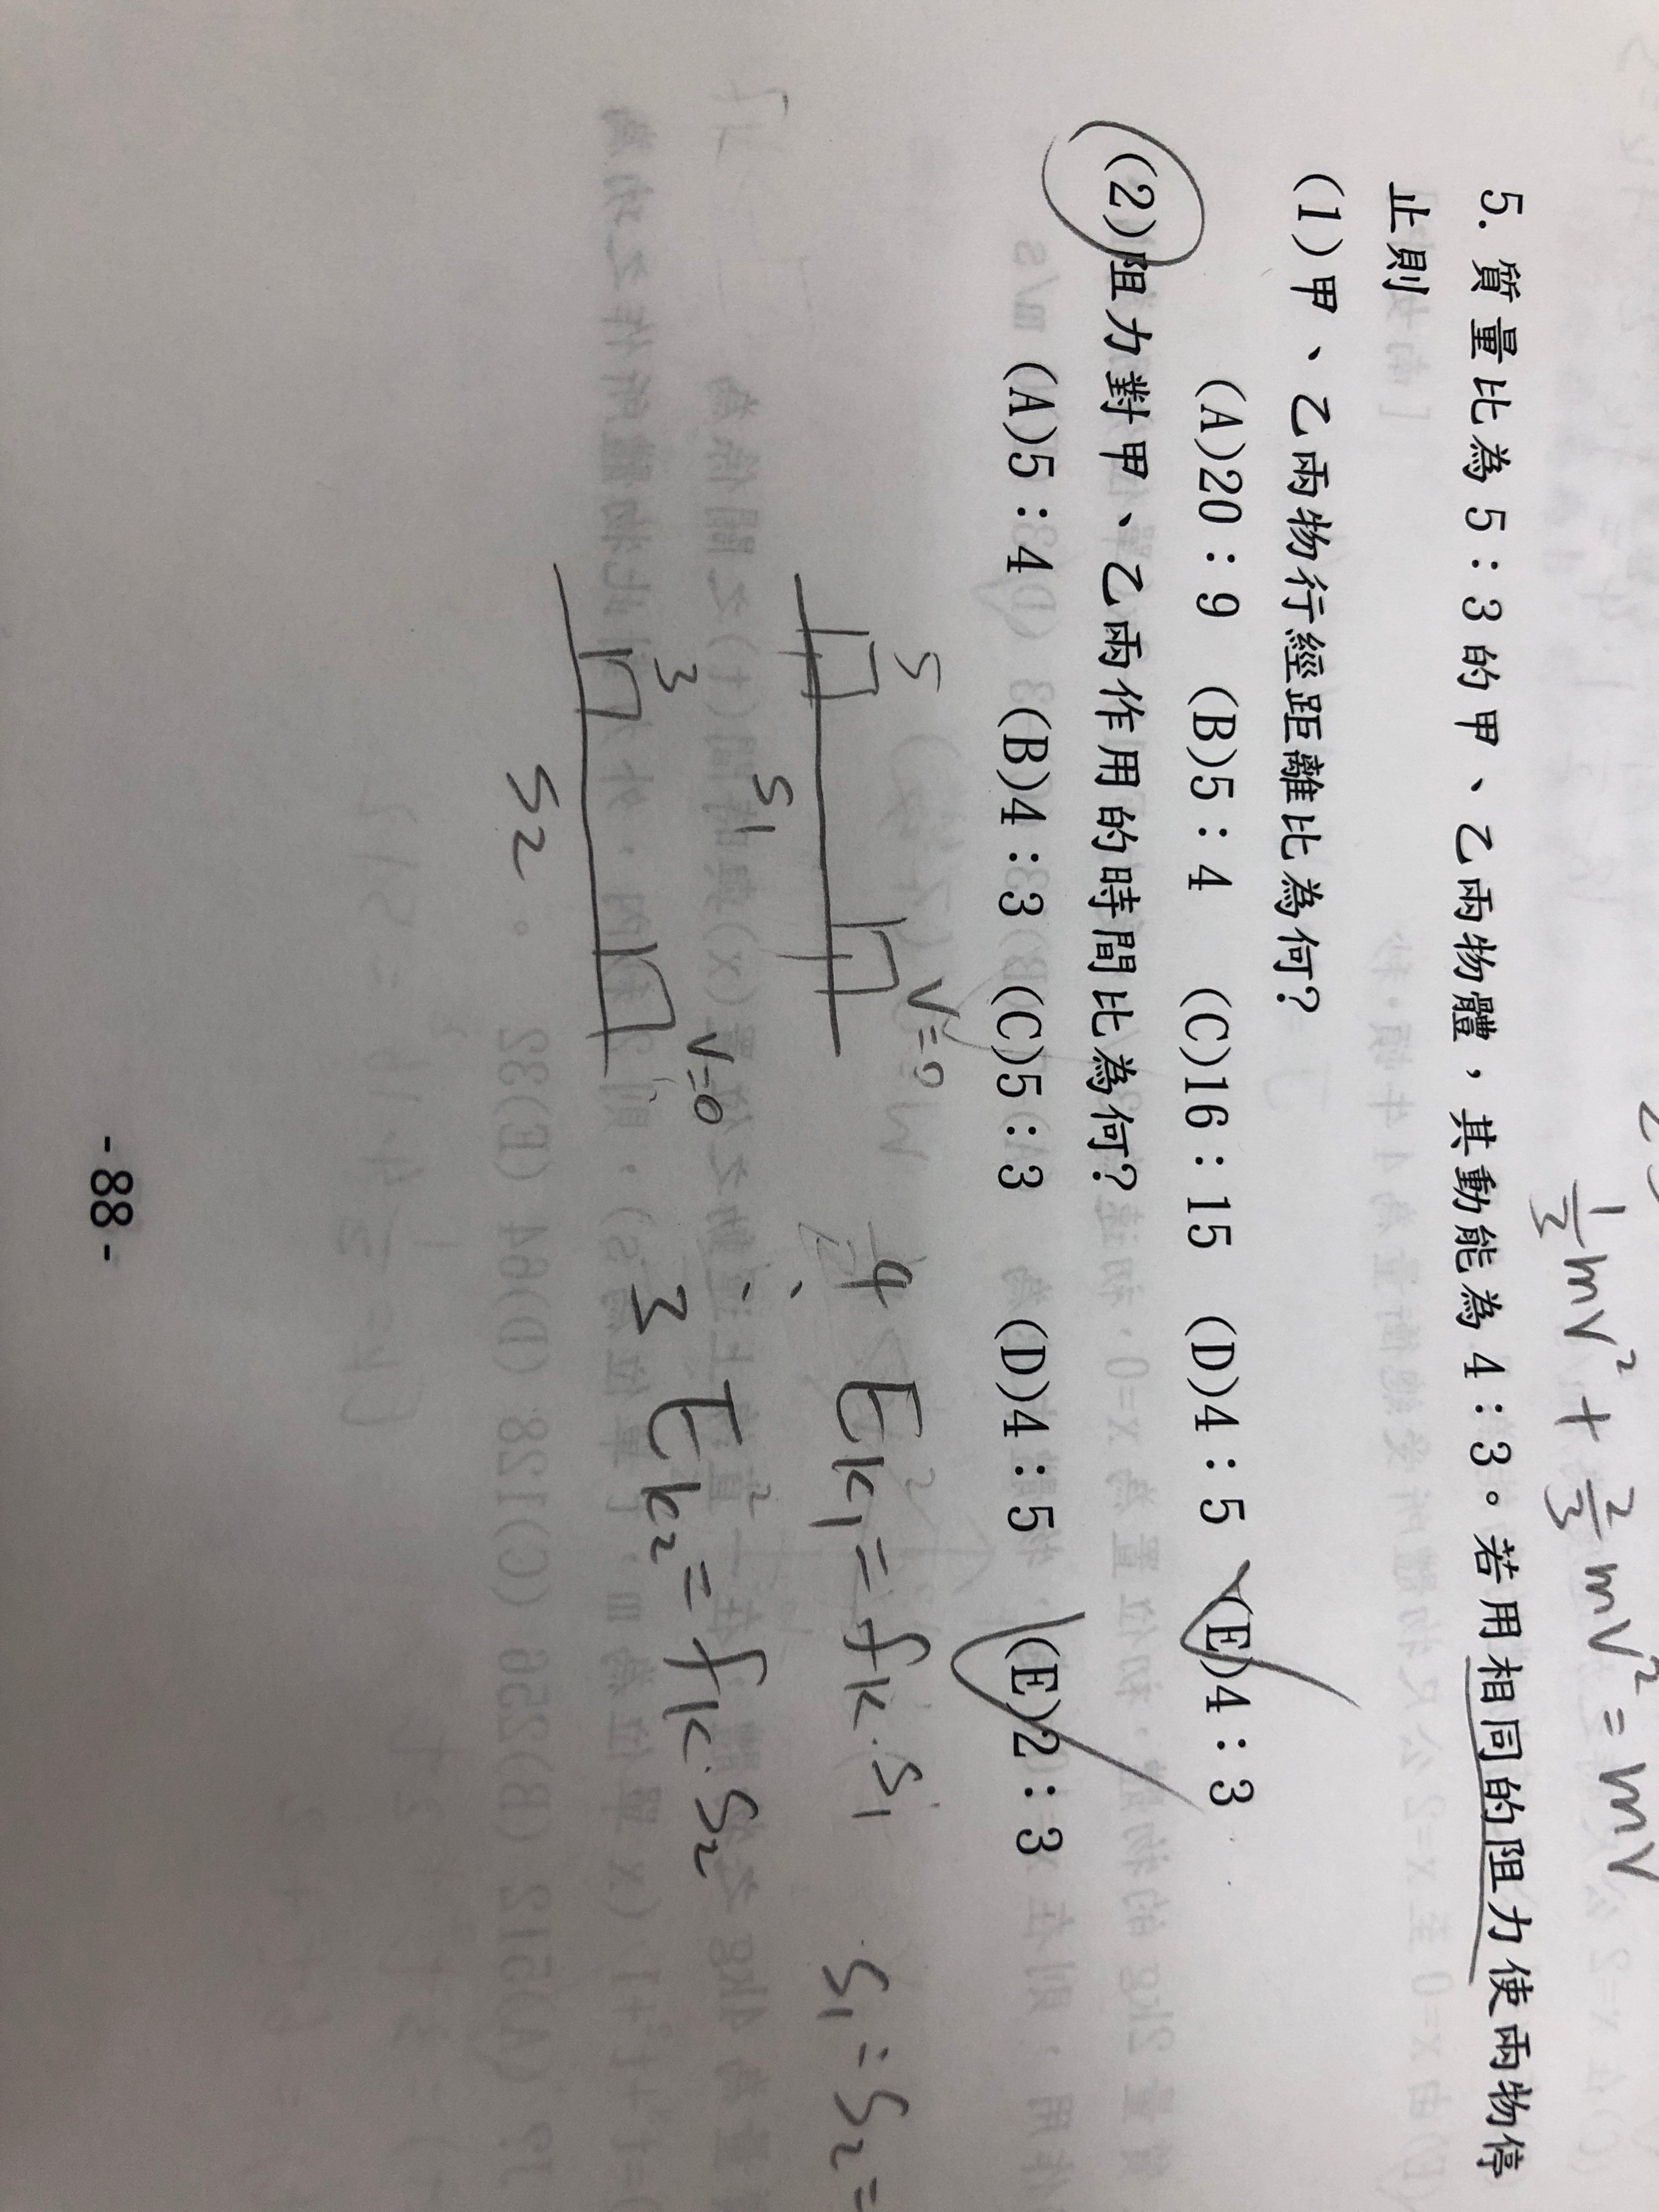 1/2 mv² + 2/2 mv² = mv
5. 質量比為 5:3 的甲、乙兩物體，其動能為 4:3。若用相同的阻力使兩物停
止則
(1)甲、乙兩物行經距離比為何?
(A)20:9 (B)5:4 (C)16:15 (D)4:5 (E)4:3
(2)阻力對甲、乙兩作用的時間比為何?
(A)5:4 (B)4:3 (C)5:3 (D)4:5 (E)2:3
5 V=0
S1
4 Ek1 = fk·S1 S1:S2=
:
3 V=0
S2
3 Ek2 = fk·S2
- 88 -